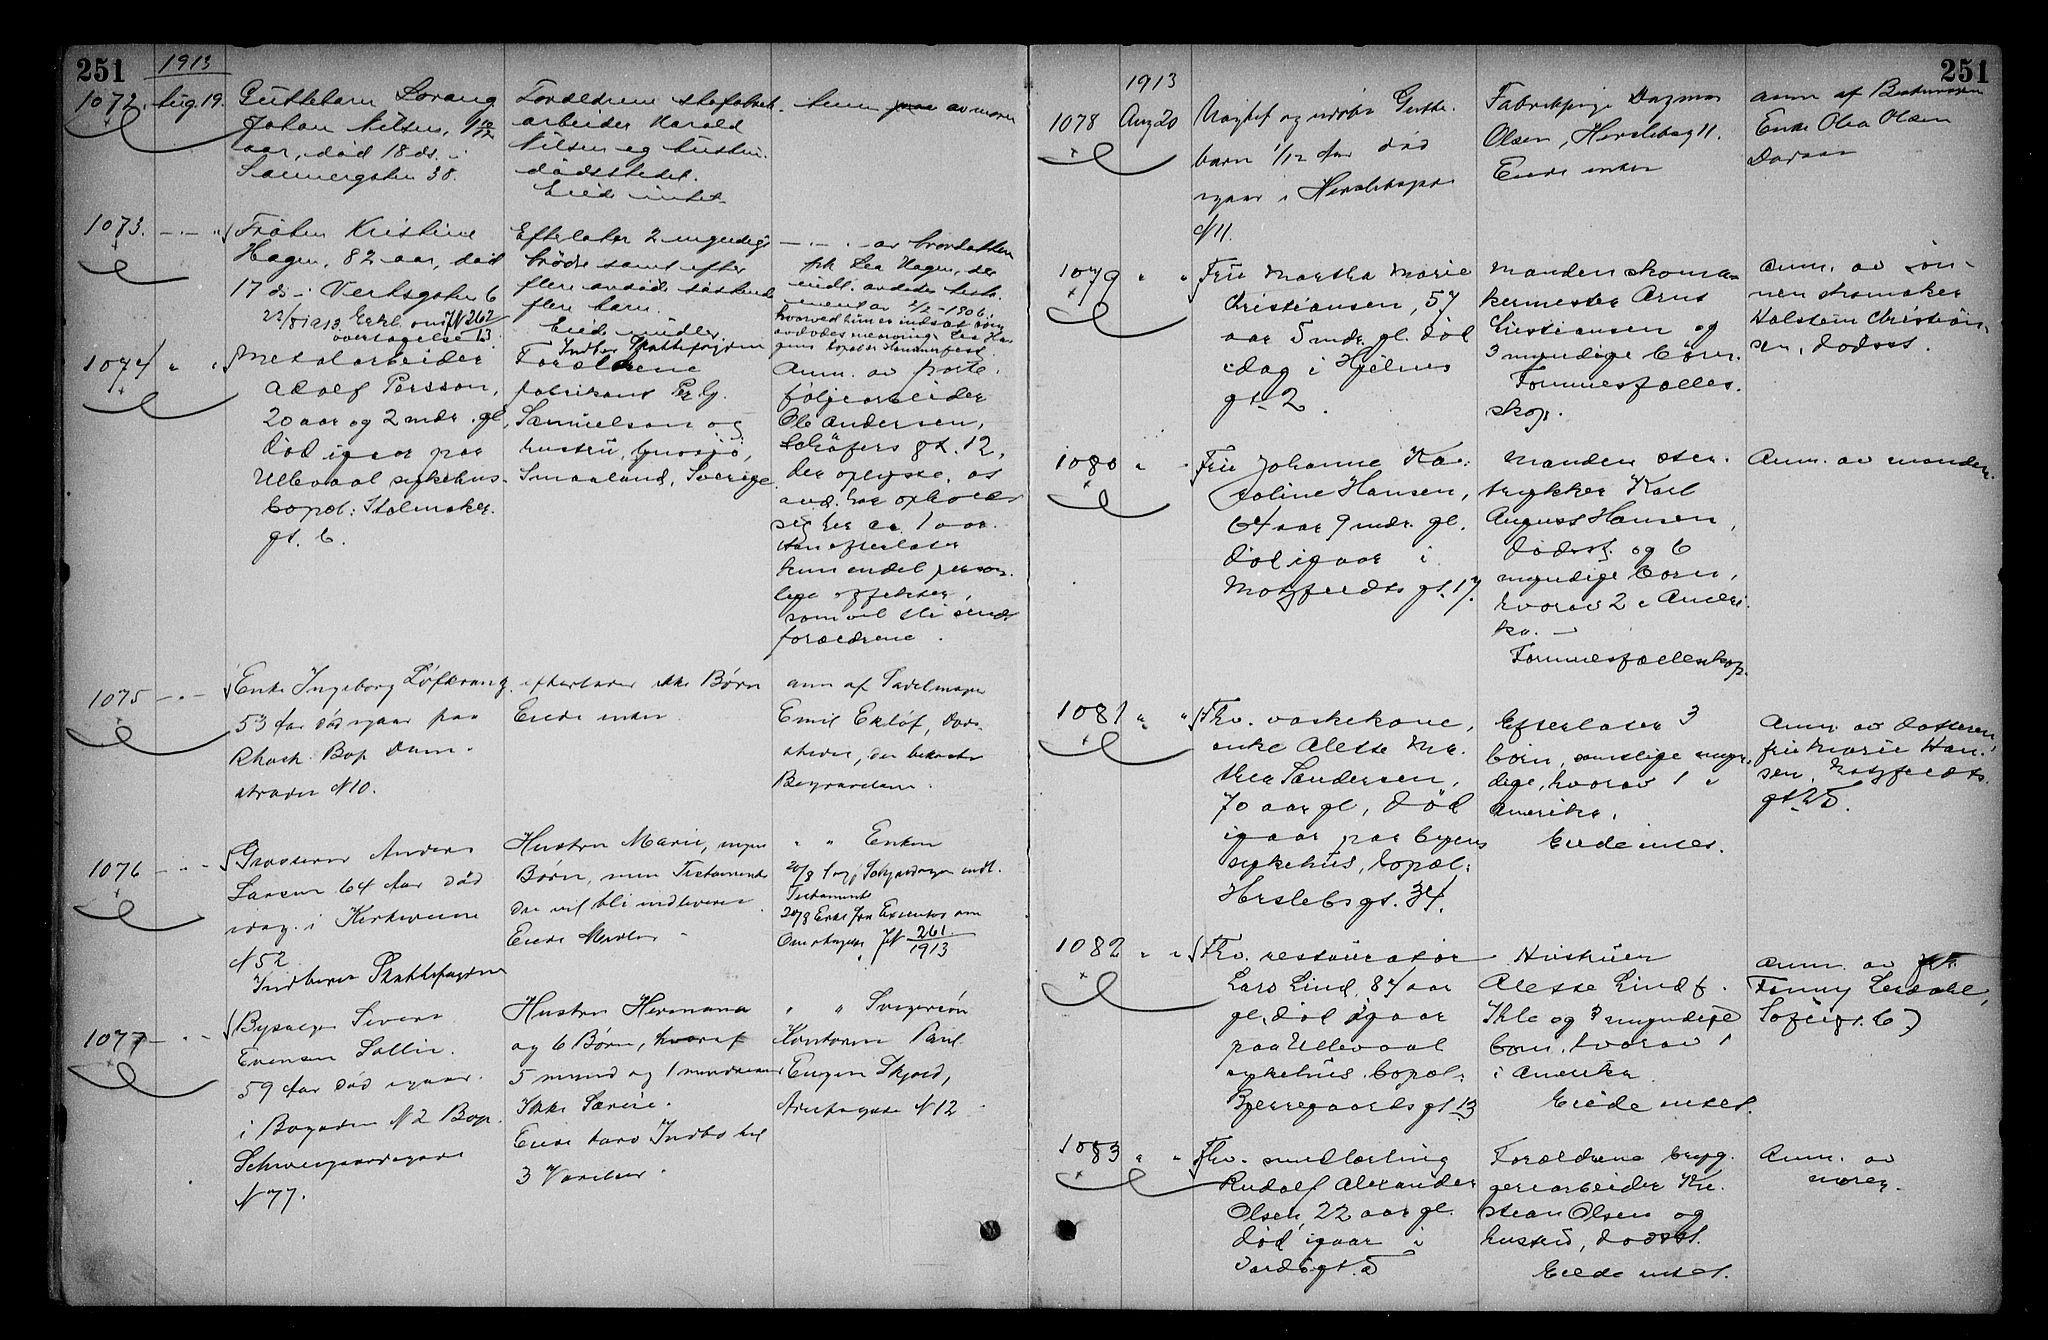 251
1913
1072. Aug 19.
Guttebarn Lorang
Johan Nilsen, 1 10/12
aar, død 18 ds. i
38.
Forældrene
arbeider Harald
Nilsen og hustru.
dødsstedet.
Eiede intet
av moren
1073. — „ — „
Frøken Kristine
Hagen, 82 aar, død
17 ds i Verksgaten 6
22/8 1913 Erkl. om JN 262/13
overtagelse
Efterlater 2 myndige
brødre samt efter
flere avdøde søskende
flere barn.
Eiede midler
Indber Skattefogden
— „ — av brordatter
frk Lea Hagen, der
indl. avdødes testa-
ment av 2/2 - 1906
hvorved hun er indsat som
1074 „ „
Metalarbeider
Adolf Persson,
20 aar og 2 mdr. gl,
død igaar paa
Ullevaal sykehus.
bopæl: Stolmaker-
gt. 6.
Forældrene
fabrikant Per G.
Samuelson og
hustru, Gnosjö,
Smaaland, Sverige
Anm. av
følgearbeider
Ole Andersen,
Schäfers gt. 12,
der oplyste, at
avd. har opholdt
sig her ca. 1 aar.
Han efterlater
kun endel person-
lige effekter,
som vil bli sendt
forældrene.
1075 — „ —
Enke Ingeborg Løfkvang
53 Aar død igaar paa
Rhosh. Bop Dam-
straden N10.
efterlater ikke Børn
Eiede intet
anm af Sadelmager
Emil Ekløf, Døds-
stedet, der bekoster
Begravelsen.
1076 — „ —
Grosserer Anders
Larsen 64 Aar død
idag i Kirkeveien
N52.
Indberet Skattefogden
Hustru Marie, ingen
Børn, men Testament
der vil bli indleveret.
Eiede Midler
„ „ Enken
Testament
Overtagelse JN 261/1913
1077 — „ —
Sivert
Evensen Sollie.
59 Aar død igaar
i Bogaden N2 Bop.
Schweigaardsgade
N77.
Hustru Hermana
og 6 Børn, hvoraf
5 mynd og 1 mindreaar
Ikke Særeie.
Eiede kun Indbo til
3 Værelser.
„ „ Svigersøn
Kontorist Paul
Eugen Skjold,
N12
251
1913
1078 Aug 20
Vogtet og udøbt Gutte-
barn 1/12 Aar død
igaar i Herslebsgade
N11.
Fabrikpige Dagmar
Olsen, Herslebsg 11.
Eiede intet
anm af Bestemoren
Enke Olea Olsen
1079 „ „
Frue Martha Marie
Christiansen, 57
aar 5 mdr. gl. død
idag i Hjelms
gt. 2.
Manden skoma-
kermester Arnt
Christiansen og
3 myndige børn.
Formuesfælles-
skap.
Anm. av søn-
nen skomaker
Halstein Christian-
sen, dødsst.
1080 „ „
Frue Johanne Ka-
roline Hansen,
64 aar 9 mdr. gl.
død igaar i
Motzfeldts gt. 17.
Manden sten-
trykker Karl
August Hansen,
dødsst. og 6
myndige børn,
hvorav 2 i Ameri-
ka. —
Formuesfællesskap.
Anm. av manden.
1081 „ „
Fhv. vaskekone,
enke Alette Ma-
thea Sandersen,
70 aar gl, død
igaar paa byens
sykehus, bopæl:
Herslebsgt. 34.
Efterlater 3
børn, samtlige myn-
dige, hvorav 1 i
Amerika.
Eiede intet.
Anm. av datteren
frue Marie Han-
sen, Motzfeldts
gt. 25.
1082 „ „
Fhv. restauratør
Lars Lind, 84 aar
gl, død igaar
paa Ullevaal
sykehus. bopæl:
Bjerregaardsgt. 13
Hustruen
Alette Lind f.
Ihle og 3 myndige
børn, hvorav 1
i Amerika
Eiede intet.
Anm. av
Fanny
Sofiegt. 6
1083 „ „
Fhv. smedlærling
Rudolf Alexander
Olsen, 22 aar gl.
død igaar i
gt. 5
Forældrene bryg-
geriarbeider Kri-
stian Olsen og
hustru, dødsst.
Eiede intet.
Anm. av
moren.